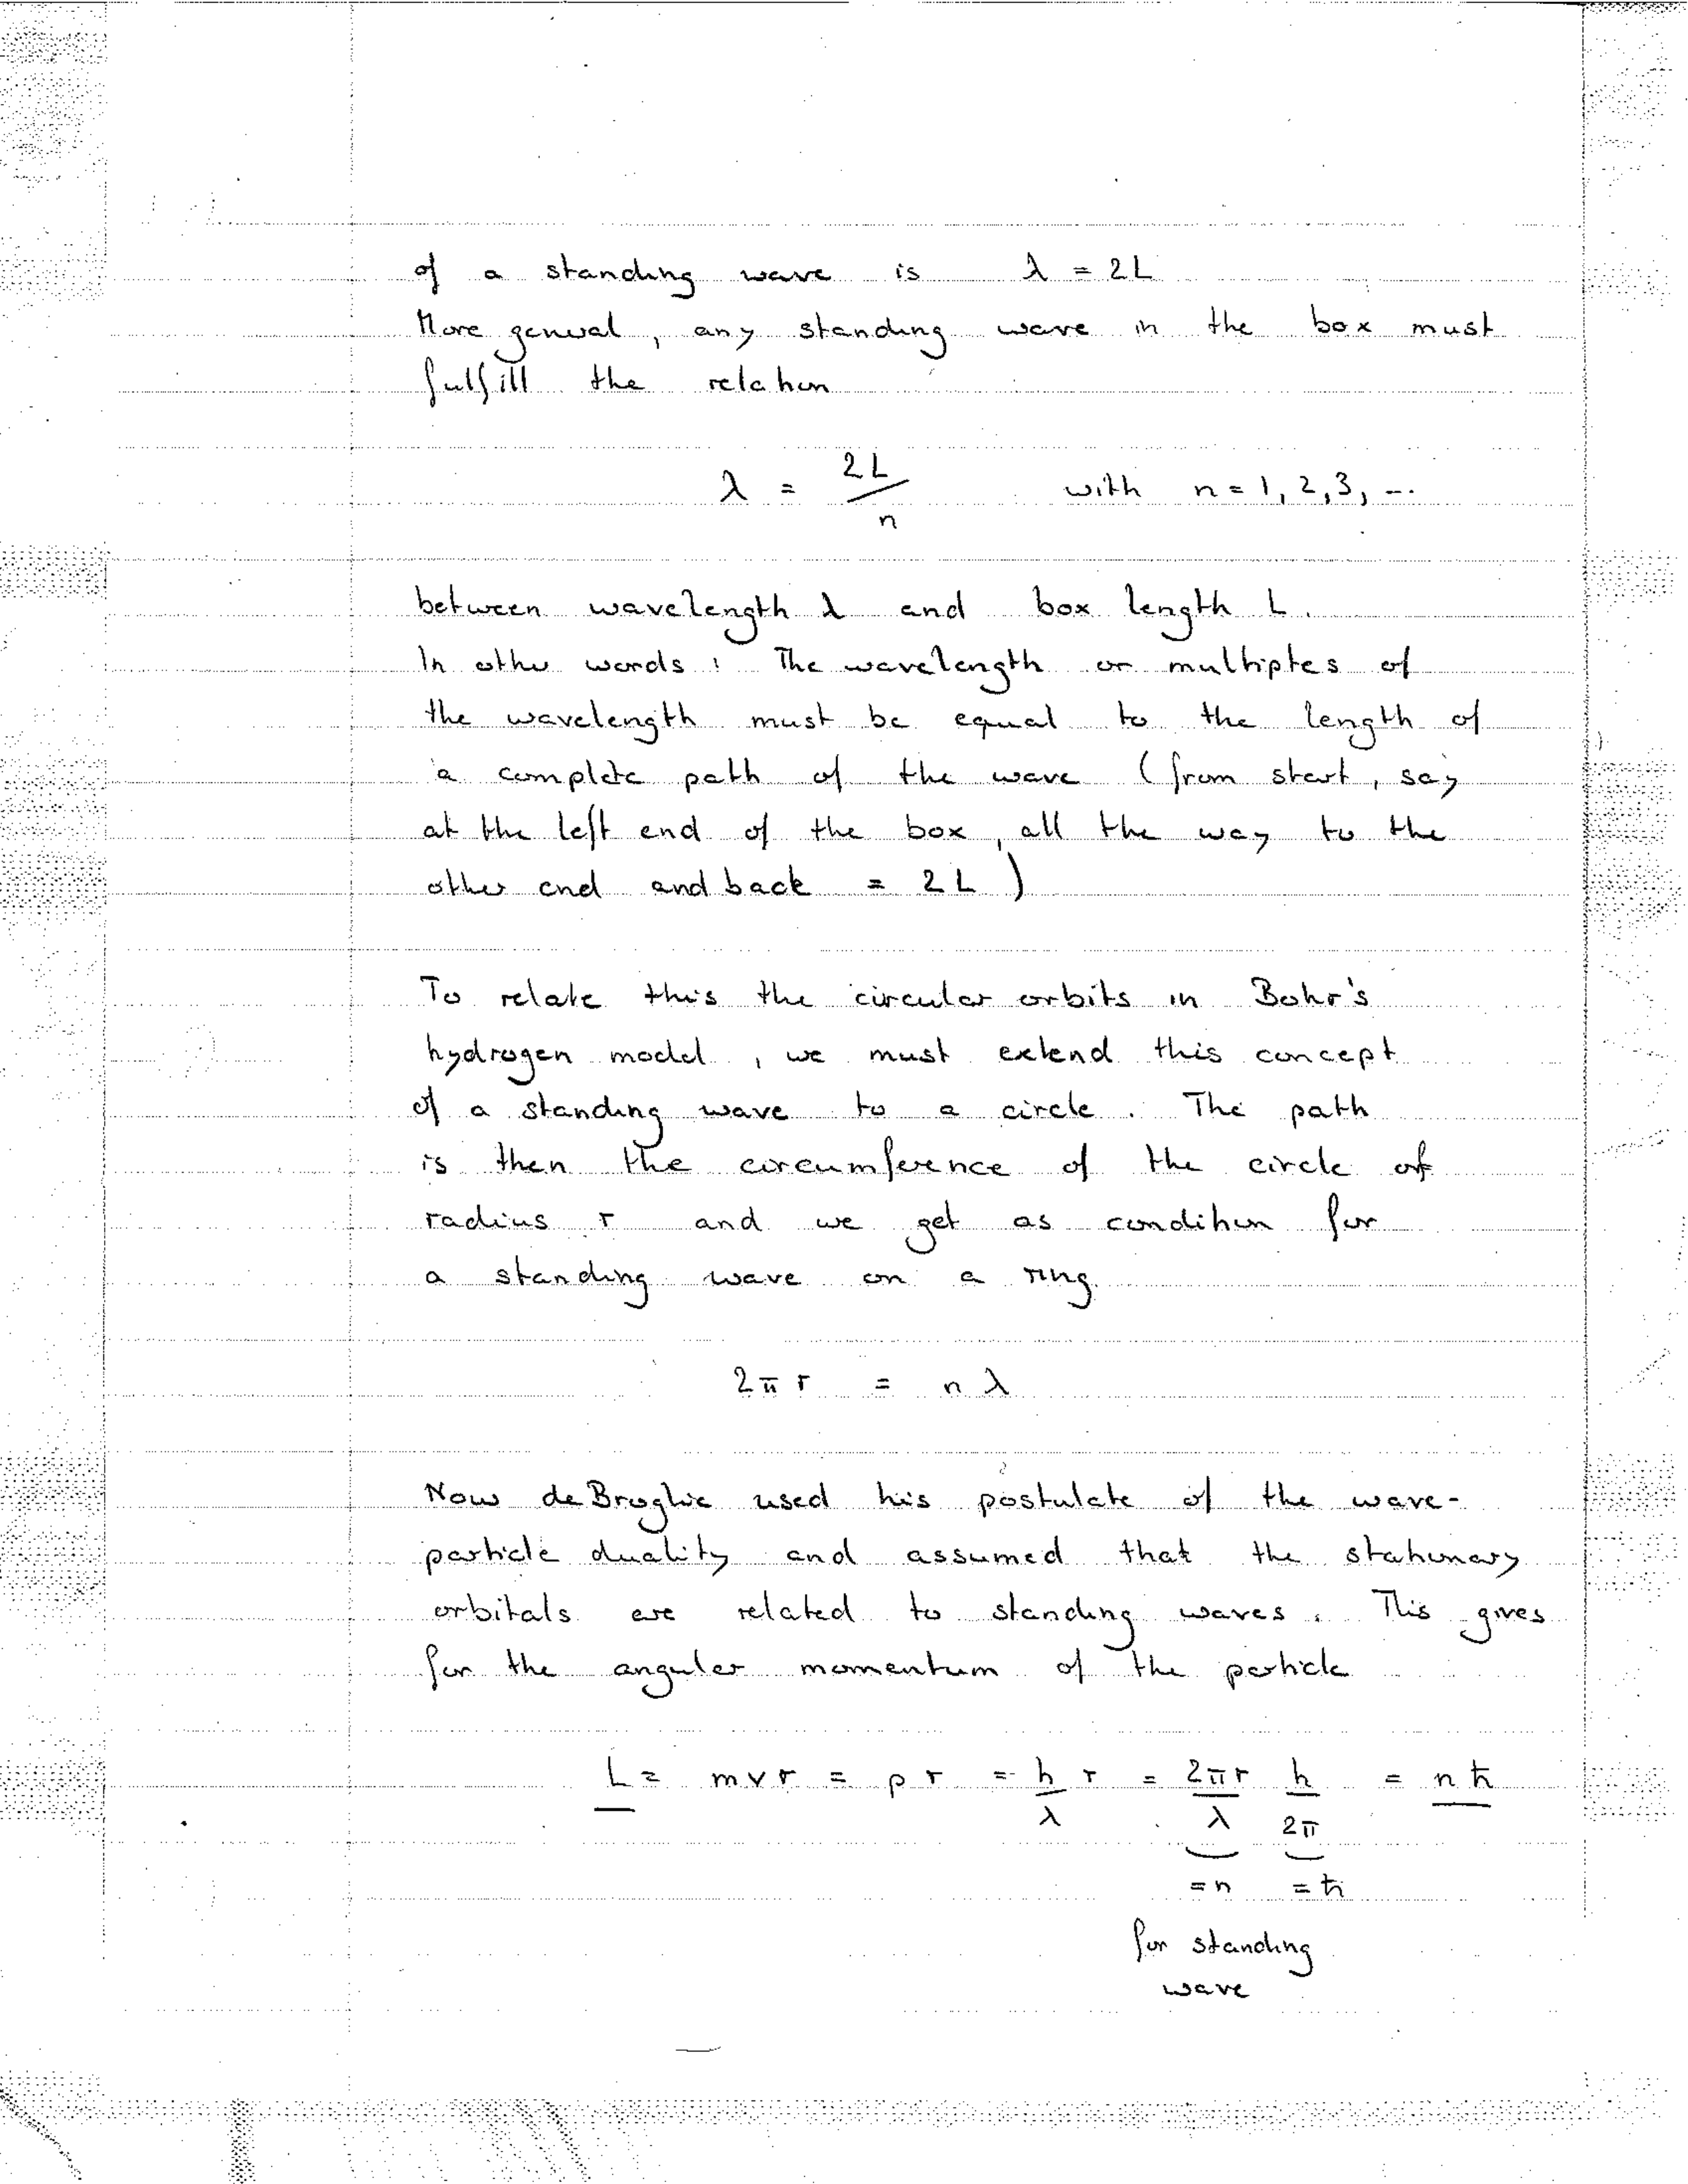 of a standing wave is λ = 2L
More general, any standing wave in the box must
fulfill the relation
λ = 2L/n with n = 1, 2, 3, ...
between wavelength λ and box length L.
In other words: The wavelength or multiples of
the wavelength must be equal to the length of
a complete path of the wave (from start, say
at the left end of the box, all the way to the
other end and back = 2L)
To relate this the circular orbits in Bohr's
hydrogen model, we must extend this concept
of a standing wave to a circle. The path
is then the circumference of the circle of
radius r and we get as condition for
a standing wave on a ring.
2πr = nλ
Now deBroglie used his postulate of the wave-
particle duality and assumed that the stationary
orbitals are related to standing waves. This gives
for the angular momentum of the particle
L = mvr = pr = h/λ r = 2πr/λ h/2π = nħ
= n = ħ
for standing
wave